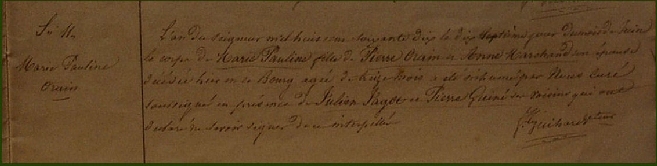 Sre 11e
Marie Pauline
Orain
L'an du seigneur mil huit cent soixante dix le dix septieme jour du mois de Juin
le corps de Marie Pauline fille de Pierre Orain et Anne Marchand son épouse
décédée hier en ce Bourg agée de treize mois a été inhumé par Nous Curé
soussigné en présence de Julien Jagot et Pierre Guiné ses voisins qui ont
déclaré ne savoir signer de ce interpellé